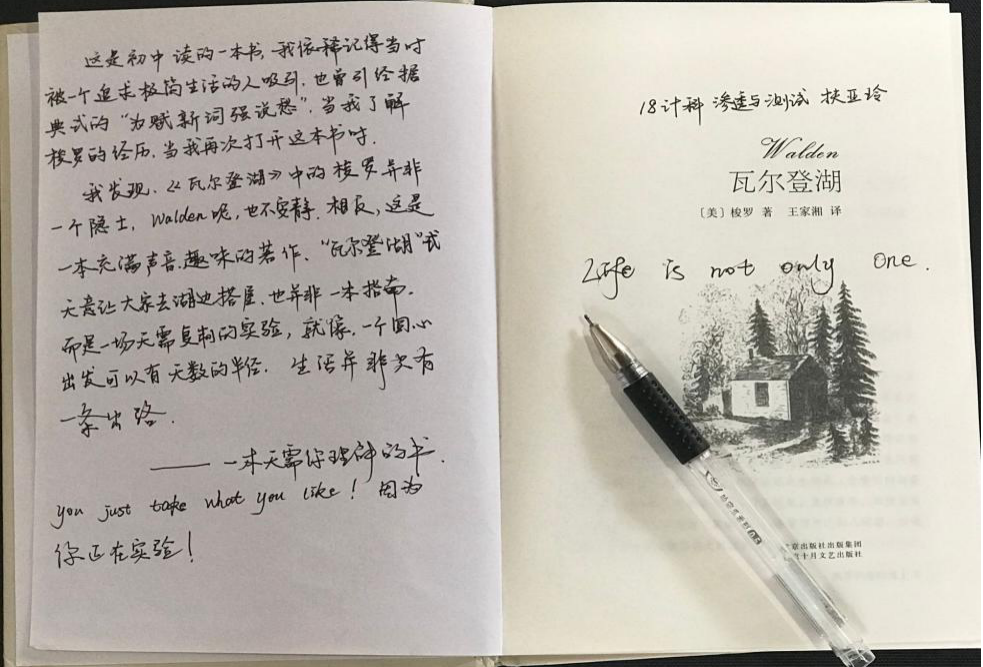 这是初中读的一本书，我依稀记得当时
被一个追求极简生活的人吸引，也曾引经据
典式的“为赋新词强说愁”，当我了解
梭罗的经历，当我再次打开这本书时．
我发现，《瓦尔登湖》中的梭罗并非
一个隐士，Walden呢，也不安静．相反，这是
一本充满声音、趣味的著作．“瓦尔登湖”式
无意让大家去湖边搭屋，也并非一本指南．
而是一场无需复制的实验，就像，一个圆心
出发可以有无数的半径．生活并非只有
一条出路．
——一本无需你理解的书．
you just take what you like！因为
你正在实验！
18计科 渗透与测试 扶亚玲
Walden
瓦尔登湖
〔美〕梭罗 著 王家湘 译
Life is not only one.
京出版社出版集团
十月文艺出版社